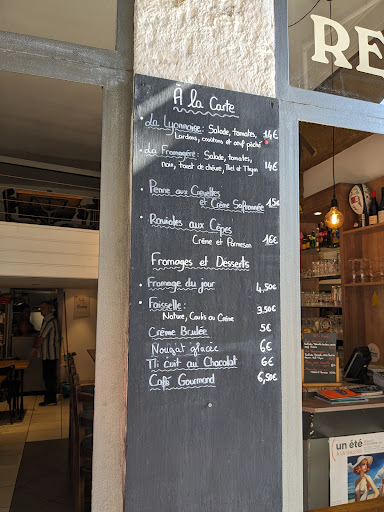 RE
À la Carte
• La Lyonnaise : Salade, tomates, 14€
Lardons, croûtons et œuf poché
• La Fromagère : Salade, tomates,
noix, toast de chèvre, Miel et Thym 14€
• Penne aux Crevettes
et Crème Safrannée 15€
• Ravioles aux Cèpes
Crème et Parmesan 16€
Fromages et Desserts
• Fromage du jour 4,50€
• Faisselle :
Nature, Coulis ou Crème 3.50€
Crème Brulée 5€
Nougat glacé 6€
Mi cuit au Chocolat 6€
Café Gourmand 6,50€
un été